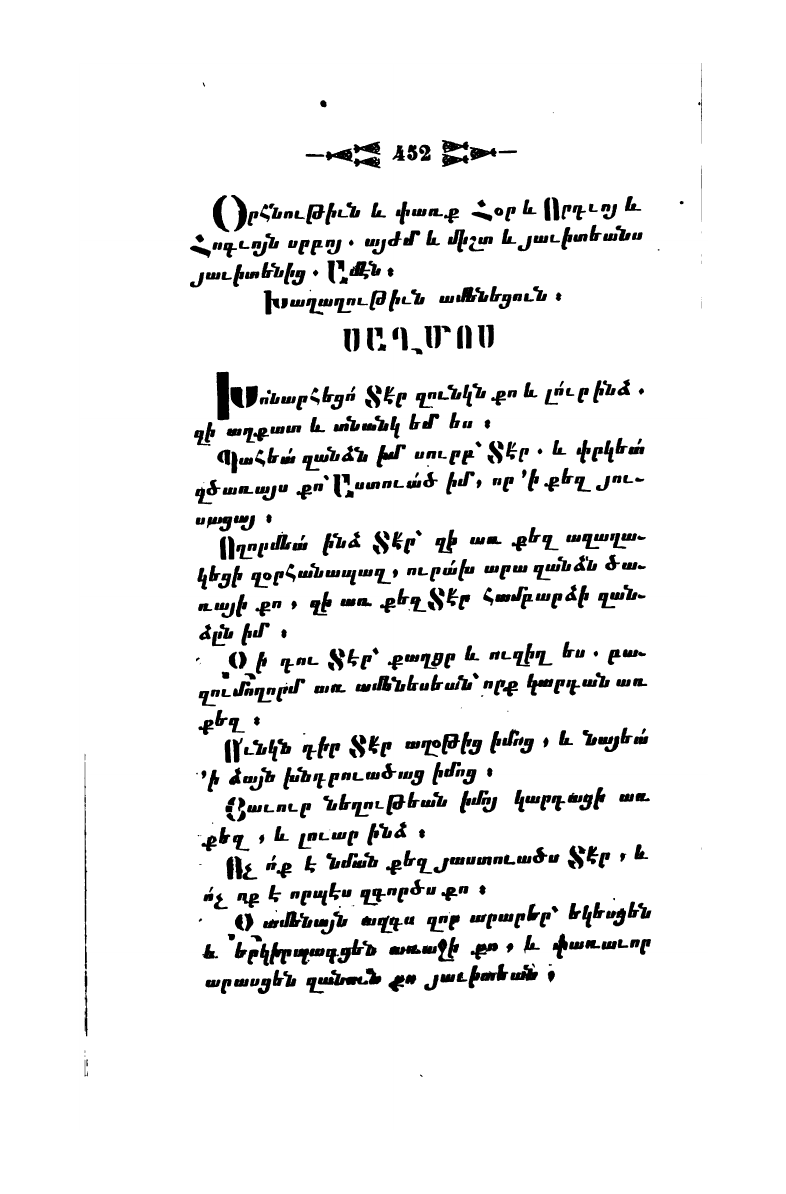 452
Օրհնութիւն և փառք Հօր և Որդւոյ և
Հոգւոյն սրբոյ . այժմ և միշտ և յաւիտեանս
յաւիտենից . Ամէն ։
Խաղաղութիւն ամենեցուն ։
ՍԱՂՄՈՍ
Խոնարհեցո՛ Տէր զունկն քո և լո՛ւր ինձ .
զի աղքատ և տնանկ եմ ես ։
Պահեա՛ զանձն իմ սուրբ՝ Տէր . և փրկեա՛
զծառայս քո՝ Աստուած իմ, որ ՚ի քեզ յու-
սացայ ։
Ողորմեա՛ ինձ Տէր՝ զի առ քեզ աղաղա-
կեցի զօրհանապազ, ուրա՛խ արա զանձն ծա-
ռայի քո , զի առ քեզ Տէր համբարձի զան-
ձըն իմ ։
Զի դու Տէր՝ քաղցր և ուղիղ ես . բա-
զումողորմ առ ամենեսեան՝ որք կարդան առ
քեզ ։
Ունկն դիր Տէր աղօթից իմոց , և նայեա՛
՚ի ձայն խնդրուածաց իմոց ։
Յաւուր նեղութեան իմոյ կարդացի առ
քեզ , և լուար ինձ ։
Ոչ ո՛ք է նման քեզ յաստուածս Տէր , և
ո՛չ ոք է որպէս զգործս քո ։
Զամենայն ազգս զոր արարեր՝ եկեսցեն
և երկիրպագցեն առաջի քո , և փառաւոր
արասցեն զանուն քո յաւիտեան ։